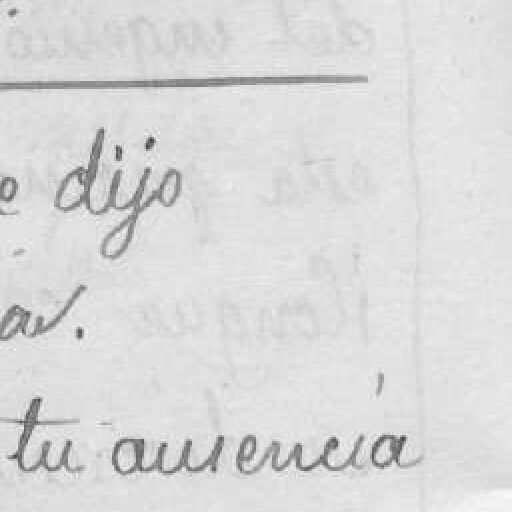 e dijo
ar.
tu ausencia